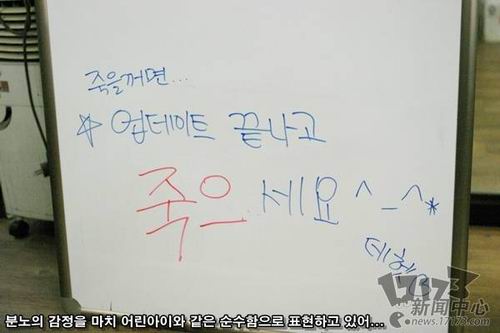 죽을꺼면...
☆ 업데이트 끝나고
죽으세요^_^*
17173
新闻中心
news.17173.com
분노의 감정을 마치 어린아이와 같은 순수함으로 표현하고 있어....